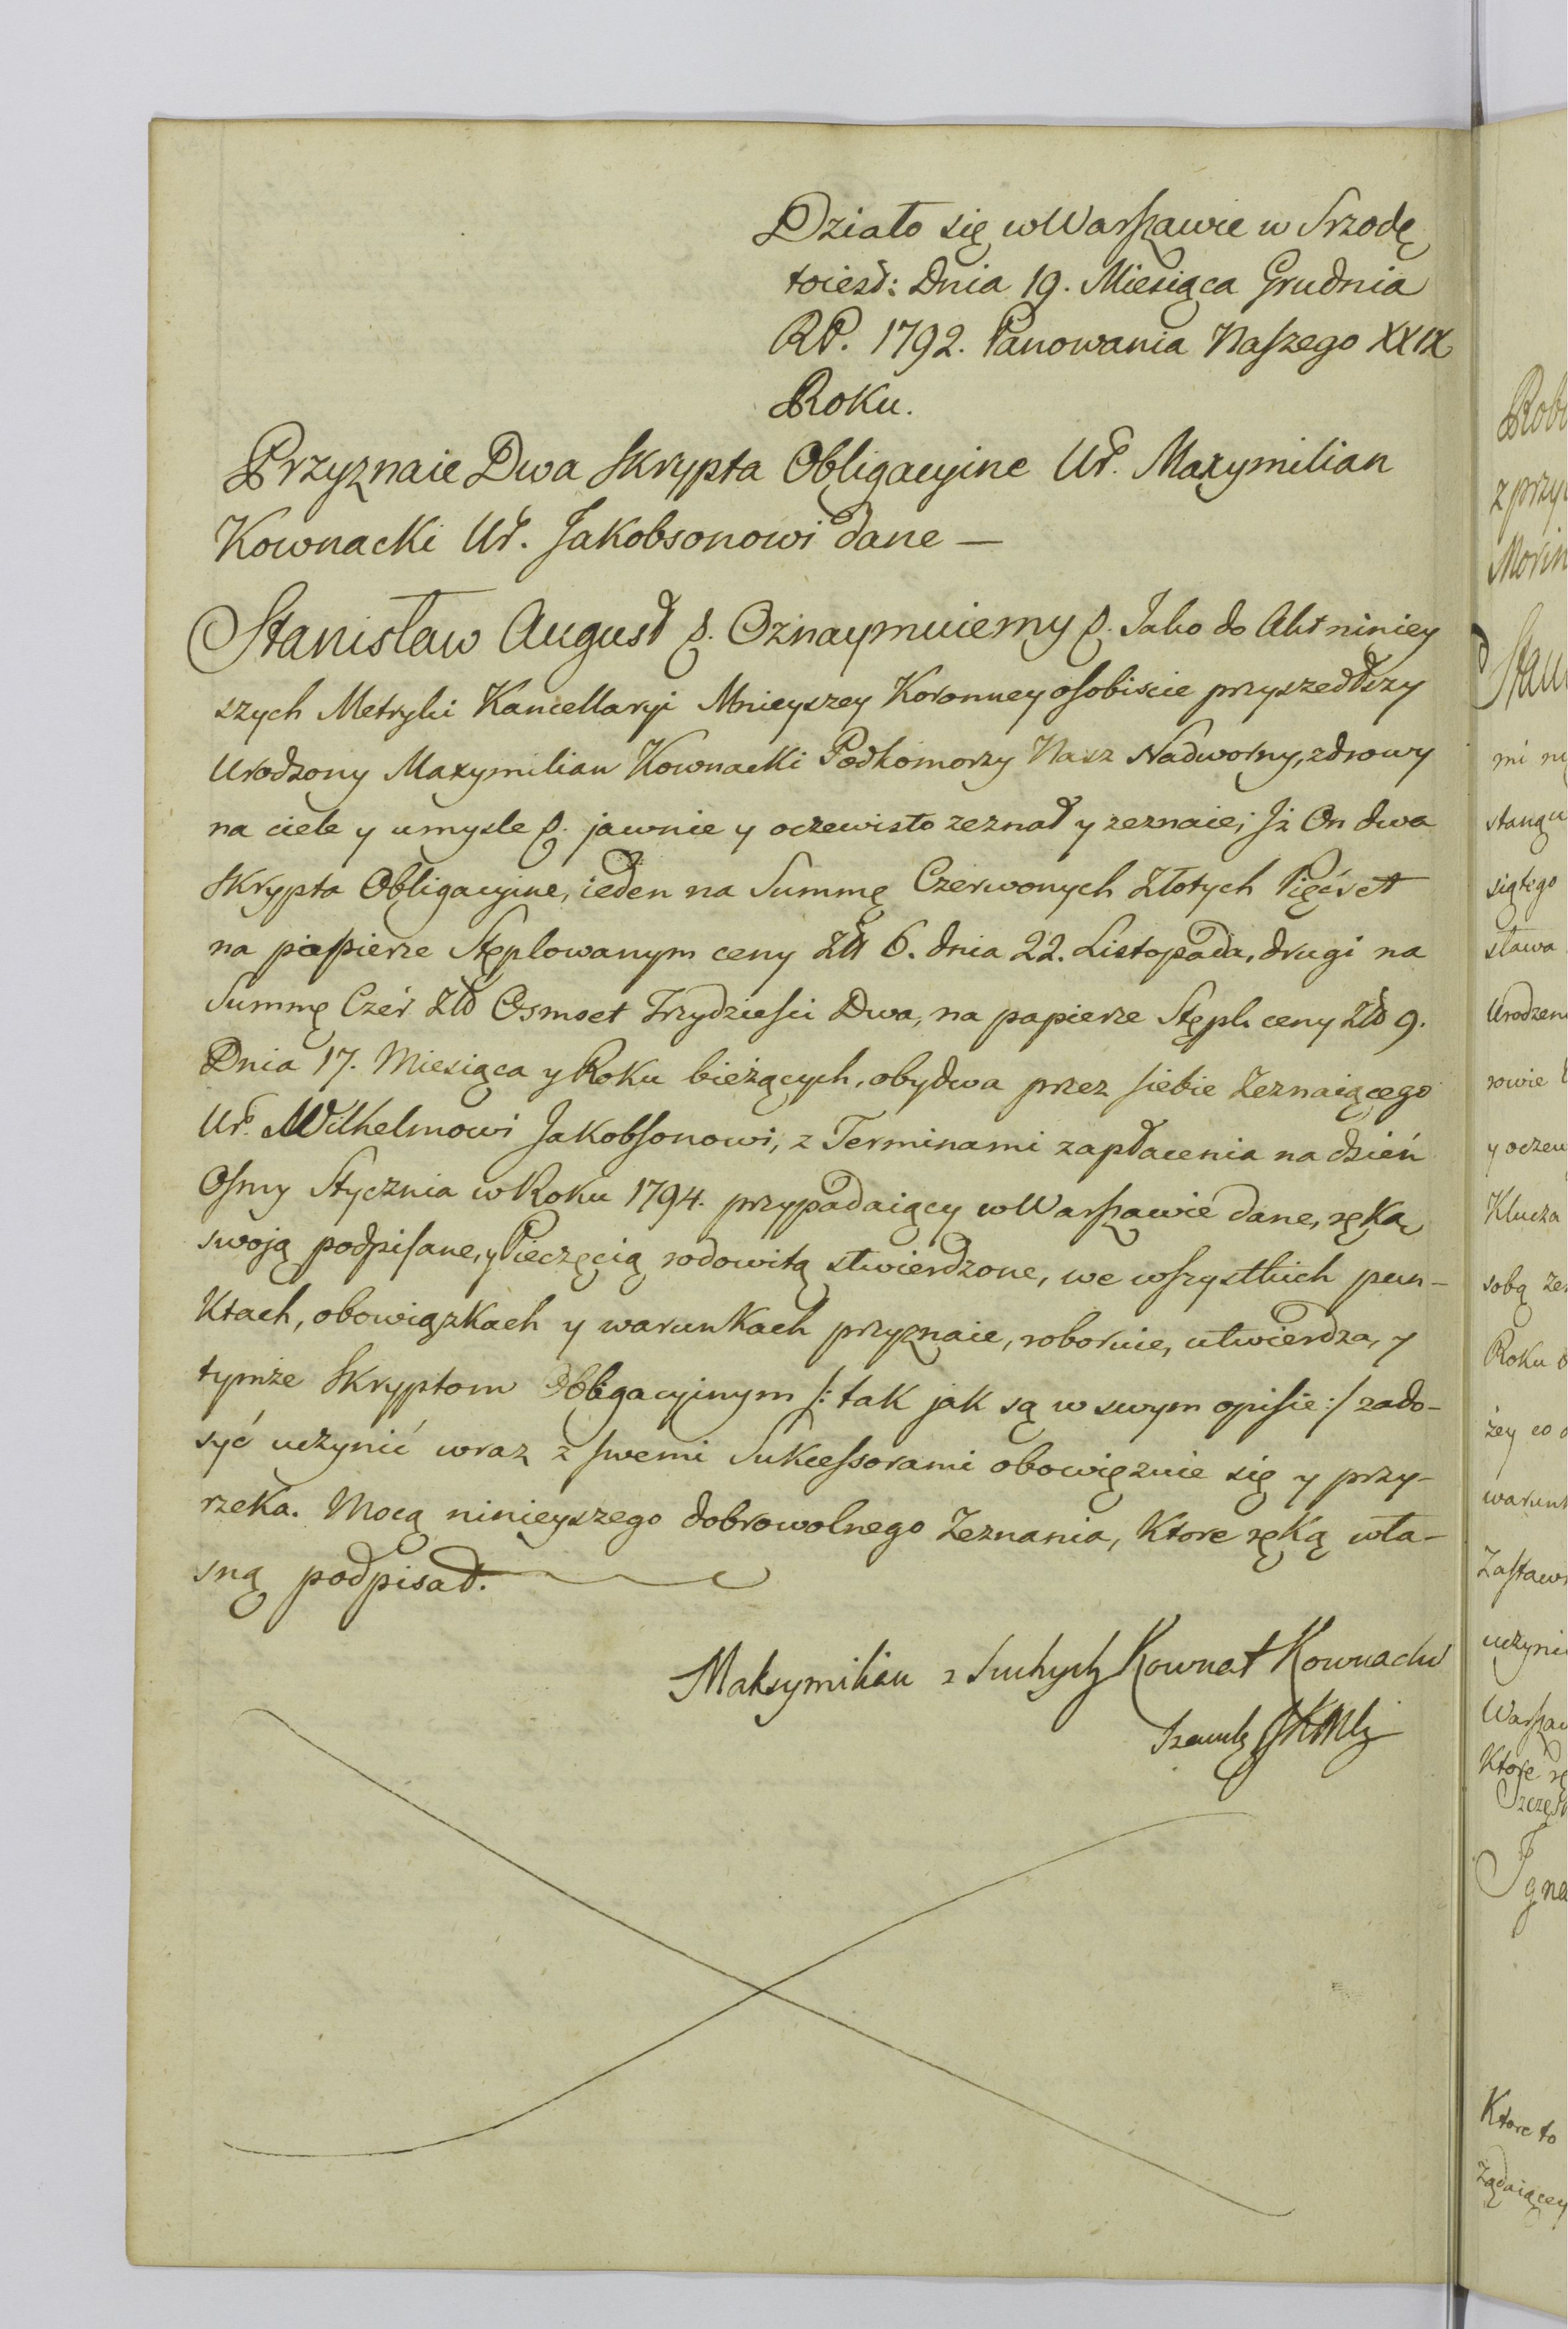 Działo się w Warszawie w Srzodę
toiest: Dnia 19. Miesiąca Grudnia
RP. 1792. Panowania Naszego XXIX
Roku.
Przyznaie Dwa Skrypta Obligacyine Ur. Maxymilian
Kownacki Ur. Jakobsonowi dane —
Stanisław August &. Oznaymuiemy &. Jako do Akt niniey
szych Metryki Kancellaryi Mnieyszey Koronney osobiscie przyszedłszy
Urodzony Maxymilian Kownacki Podkomorzy Nasz Nadworny, zdrowy
na ciele y umysle &. jawnie y oczewisto zeznał y zeznaie; Iż On dwa
Skrypta Obligacyine, ieden na Summę Czerwonych Złotych Pięćset
na papierze Stęplowanym ceny Złł 6. dnia 22. Listopada, drugi na
Summę Czer. Złł Osmset Trzydzieści Dwa, na papierze Stępl. ceny Złł 9.
Dnia 17. Miesiąca y Roku bieżących, obydwa przez siebie Zeznaiącego
Ur. Wilhelmowi Jakobsonowi, z Terminami zapłacenia na dzień
Osmy Stycznia w Roku 1794. przypadaiący w Warszawie dane, ręką
swoją podpisane, y Pieczęcią rodowitą stwierdzone, we wszystkich pun-
ktach, obowiązkach y warunkach przyznaie, roboruie, utwierdza, y
tymże Skryptom Obligacyinym /: tak jak są w swym opisie :/ zado-
syć uczynić wraz z swemi Sukcessorami obowięzuie się y przy-
rzeka. Mocą ninieyszego dobrowolnego Zeznania, Ktore ręką wła-
sną podpisał.
Maksymilian z Suchych Kownat Kownacki